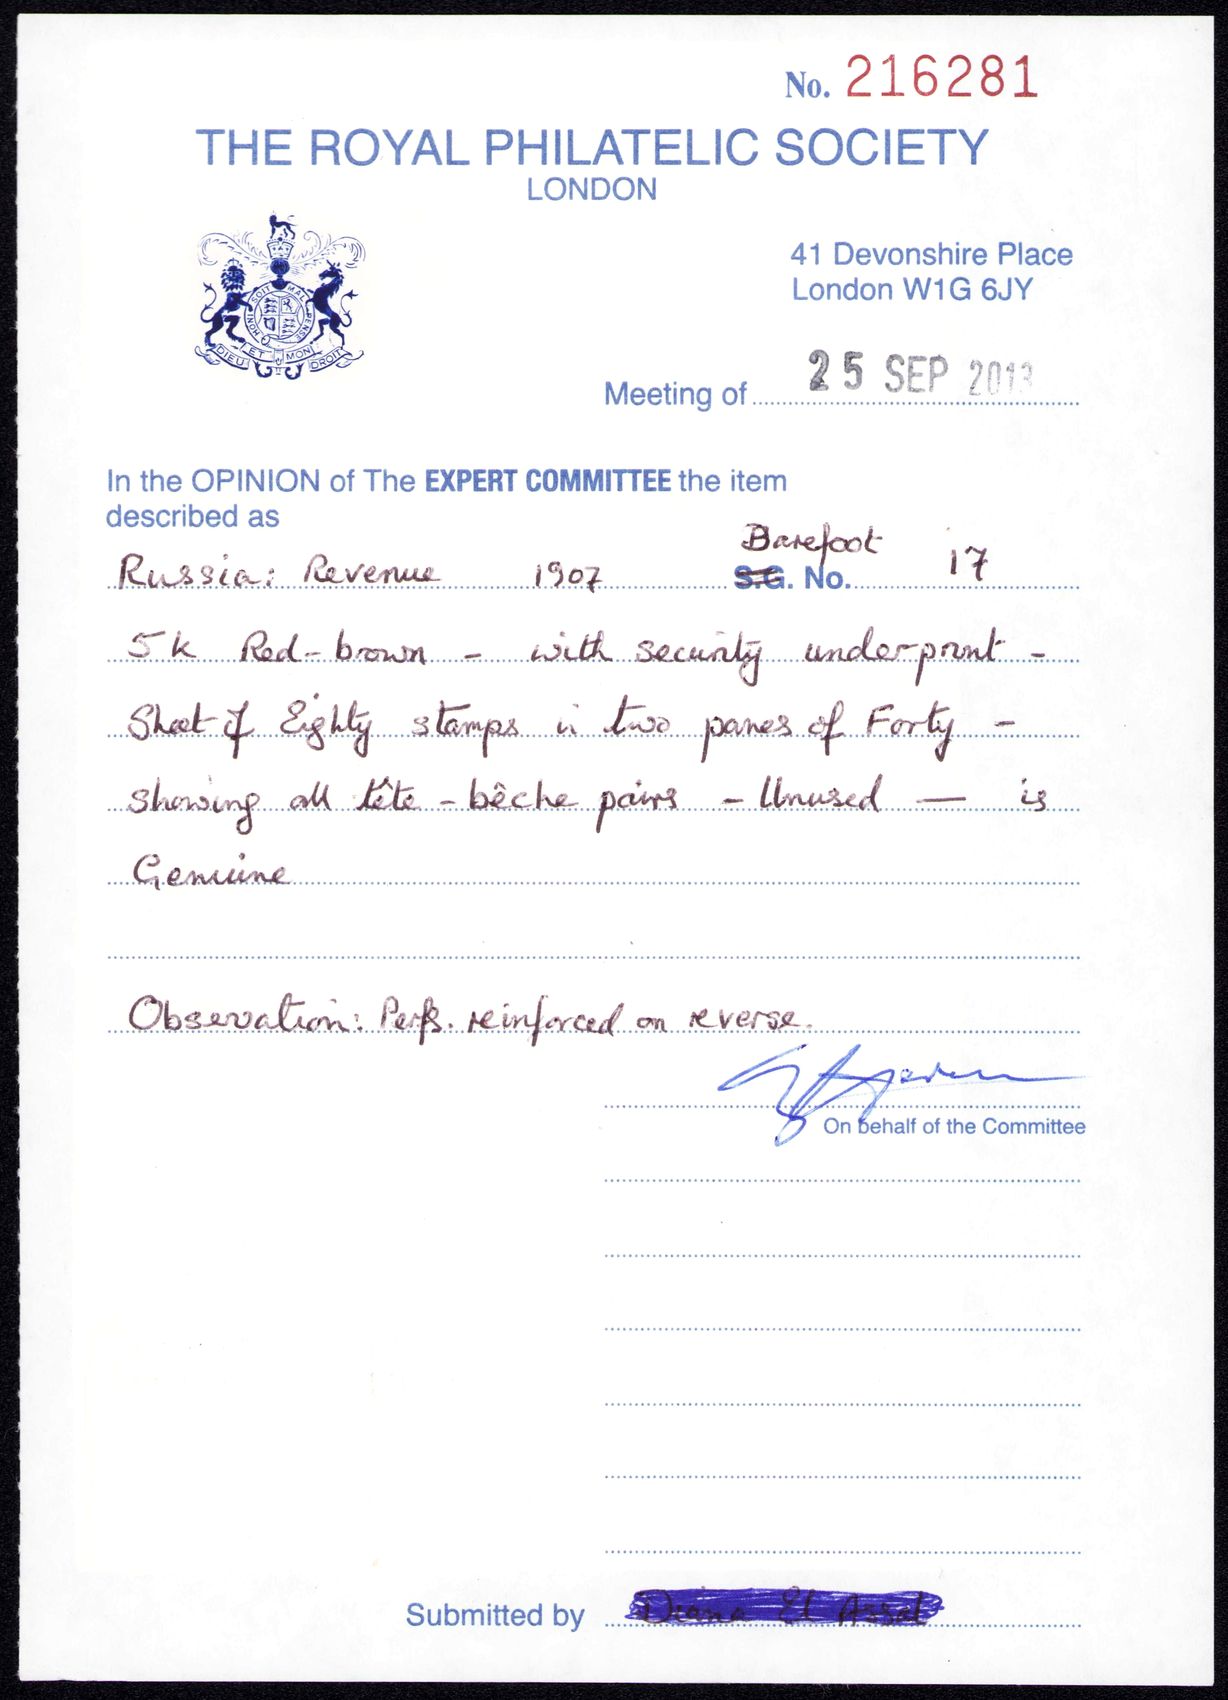 No. 216281
THE ROYAL PHILATELIC SOCIETY
LONDON
SOIT MAL
HONI
PENSE
DIEU ET MON DROIT
41 Devonshire Place
London W1G 6JY
Meeting of 25 SEP 2013
In the OPINION of The EXPERT COMMITTEE the item
described as
Barefoot
Russia: Revenue 1907 S.G. No. 17
5k Red-brown - with security underprint -
Sheet of Eighty stamps in two panes of Forty -
showing all tête-bêche pairs - Unused — is
Genuine
Observation: Perfs. reinforced on reverse.
On behalf of the Committee
Submitted by